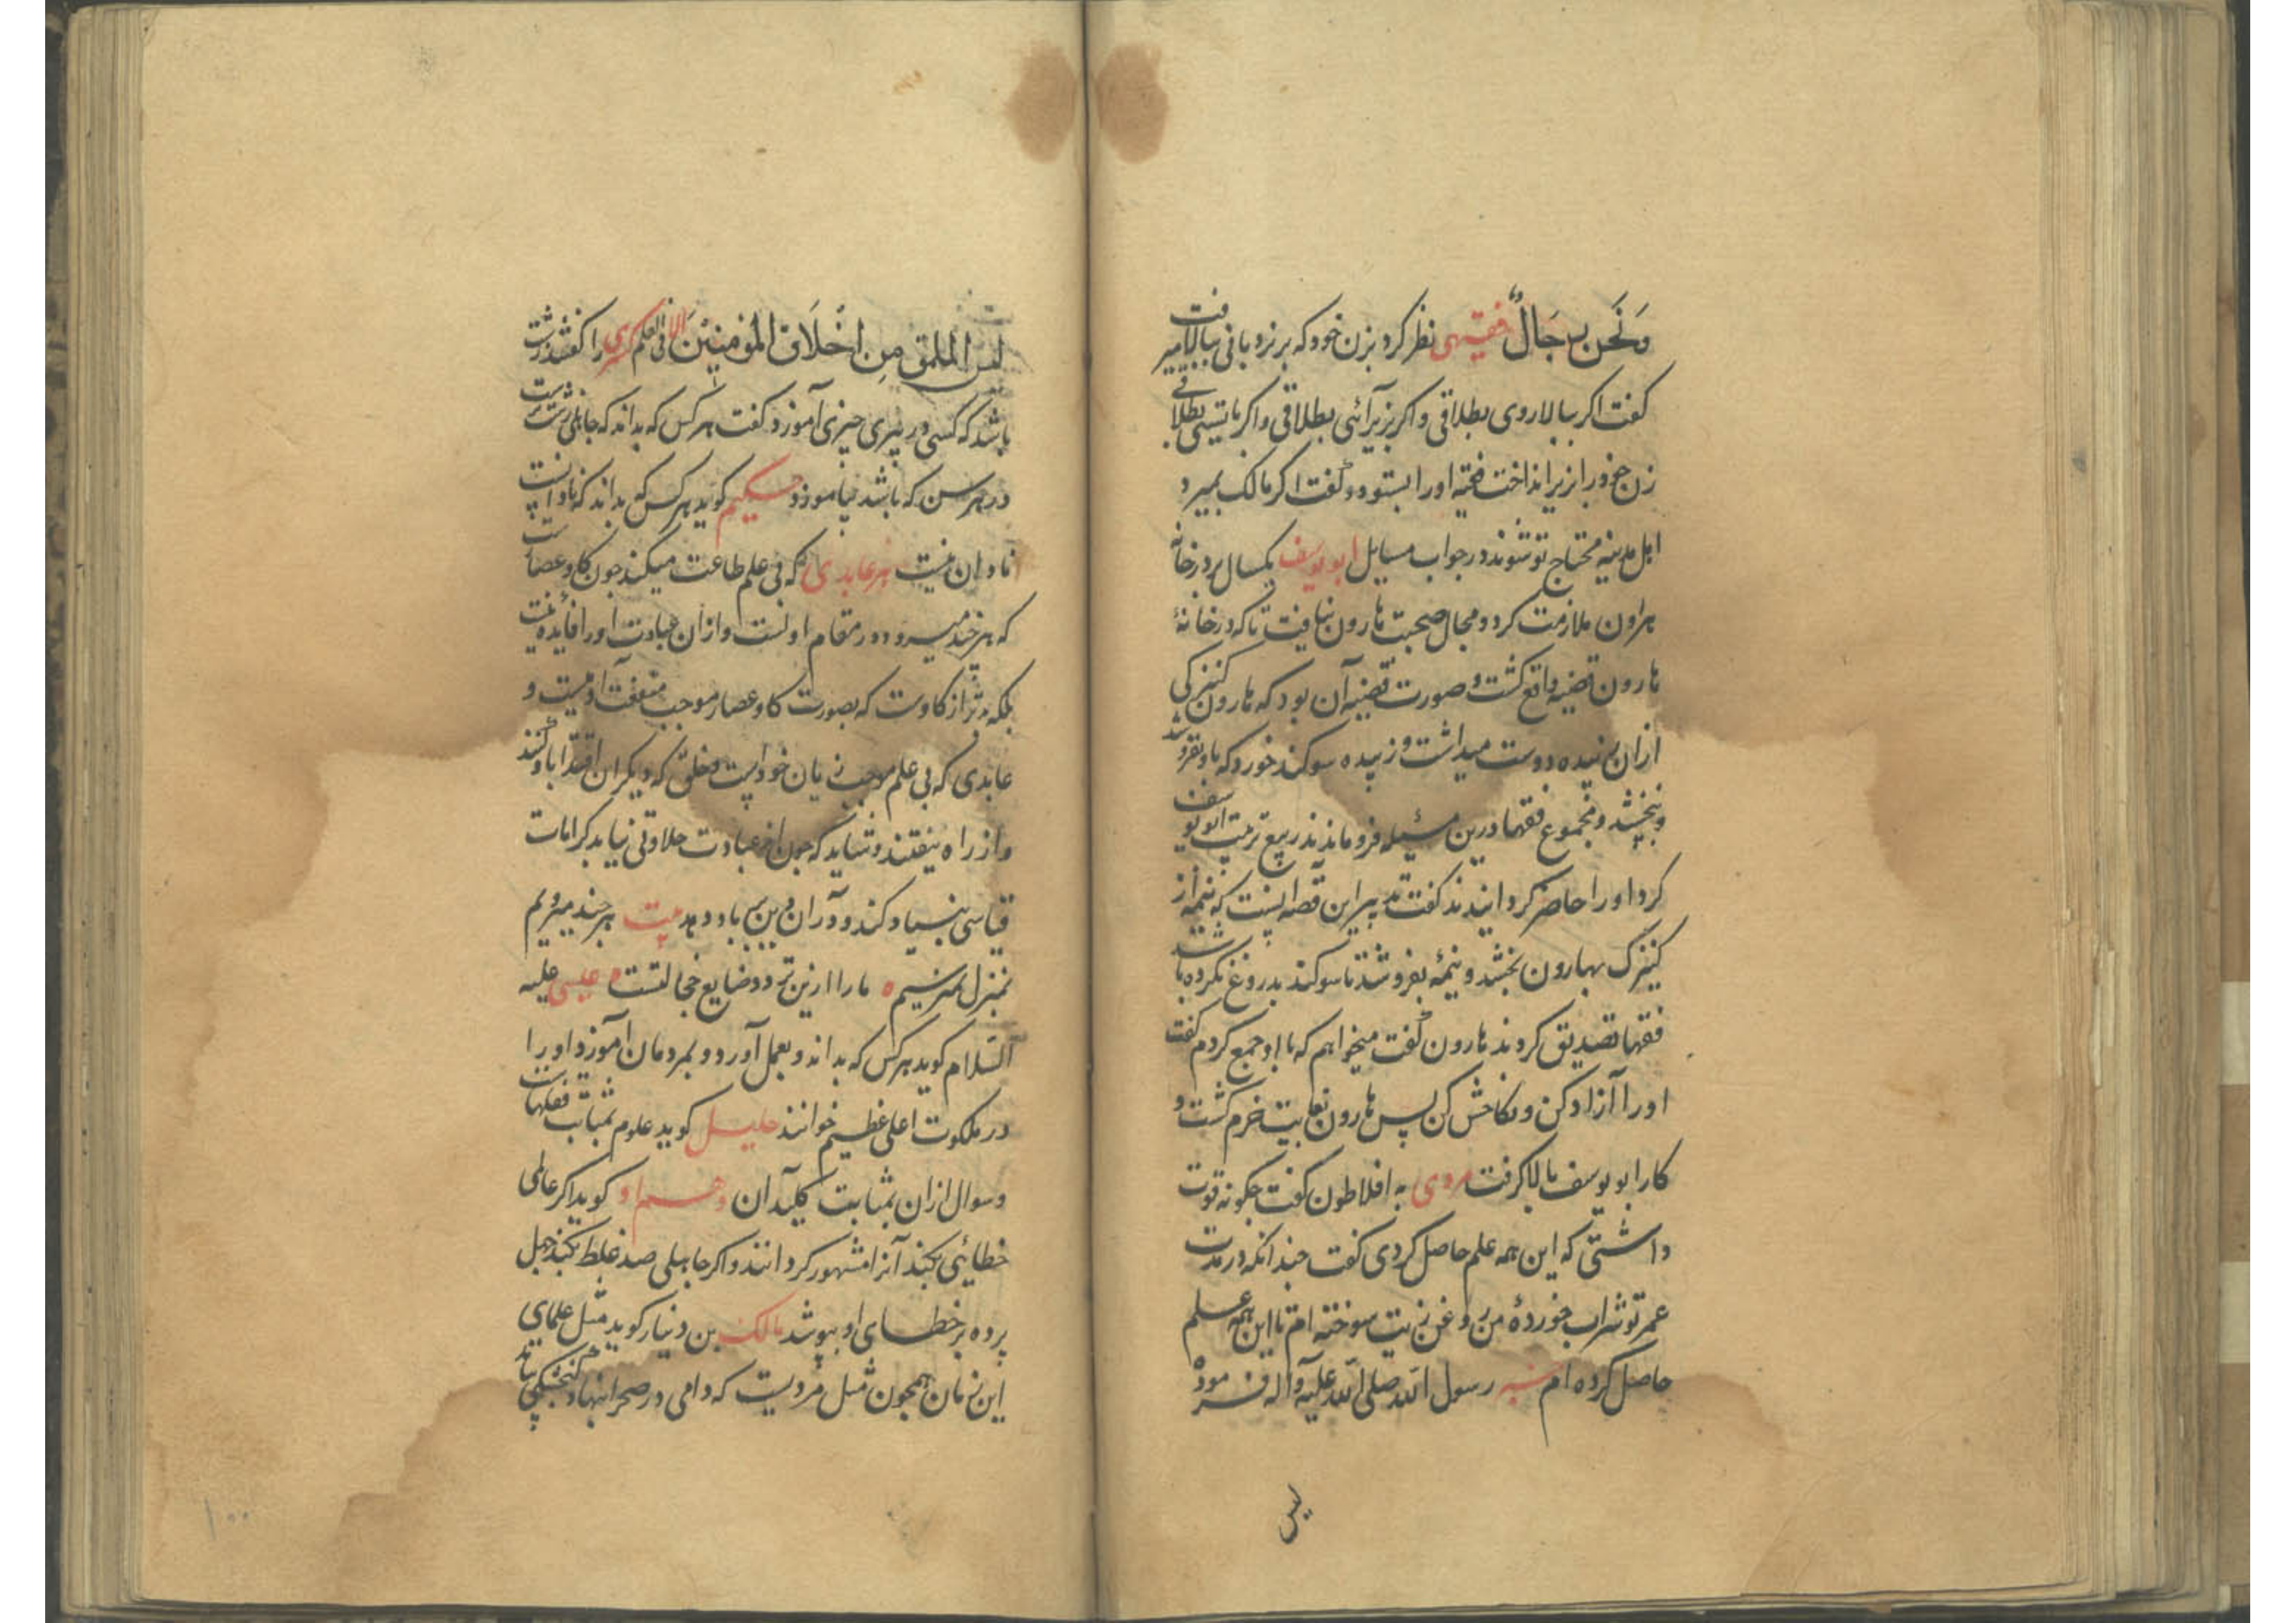 وَنَحن رِجَالٌ فقیهی نظر کرد بزن خود که بر نردبانی ببالا میرفت
کفت اکر ببالا روی بطلاقی واکر بزیر آئی بطلاقی واکر بایستی بطلاقی
زن خود را از زیر انداخت فقیه اورا بستود و کفت اکر مالک بمیرد
اهل مدینه محتاج تو شوند در جواب مسایل ابو یوسف یکسال بر در خانه
هرون ملازمت کرد و مجال صحبت هارون نیافت تا که در خانهٔ
هارون قضیه واقع کشت و صورت قضیه آن بود که هارون کنیزکی
ازان زبیده دوست میداشت و زبیده سوکند خورد که باو نفروشد
و نبخشد و مجموع فقها درین مسئله فرو ماندند ربیع تربیت ابو یوسف
کرد اورا حاضر کردانیدند کفت تدبیر این قصه اینست که نیمهٔ از
کنیزک بهارون بخشد و نیمهٔ بفروشد تا سوکند بدروغ نکرده باشد
فقها تصدیق کردند هارون کفت میخواهم که با او جمع کردم کفت
اورا آزاد کن و نکاحش کن پس هارون بغایت خرم کشت و
کار ابو یوسف بالا کرفت مردی به افلاطون کفت چکونه قوت
داشتی که این همه علم حاصل کردی کفت چندانکه در مدت
عمر تو شراب خوردهٔ من روغن زیت سوخته ام تا این همه علم
حاصل کرده ام رسول الله صلی الله علیه وآله فرمود
لیس
لیس الملق مِن اَخْلَاق المُؤمِنِیْنَ اِلا فی العلم کسری را کفتند زشت
باشد که کسی در پیری چیزی آموزد کفت هر کس که بداند که جاهلی زشتست
در هر سن که باشد بیاموزد حکیم کوید هر کس که بداند که نادانست
نادان نیست هر عابدی که بی علم طاعت میکند چون کاو عصارست
که هر چند میرود در مقام اولست وازان عبادت اورا فایده نیست
بلکه بدتر از کاوست که بصورت کاو عصار موجب منفعت آدمیست و
عابدی که بی علم موجب زیان خود است و خلق که دیکران اقتدا باو کنند
واز راه بیفتند و شاید که چون از عبادت حلاوتی نیابد بکرامات
قیاسی بنیاد کند و دران دین بباد دهد بیت هر چند میرویم
بمنزل نمیرسیم ه مارا ازین تردد ضایع خجالتست ه عیسی علیه
السّلام کوید هر کس که بداند و بعمل آورد و بمردمان آموزد اورا
در ملکوت اعلی عظیم خوانند خلیل کوید علوم بمثابت قفلهاست
وسوال ازان بمثابت کلید آن و هم او کوید اکر عالمی
خطائی بکند آنرا مشهور کردانند واکر جاهلی صد غلط بکند جهل
پرده بر خطای او بپوشد مالک بن دینار کوید مثل علمای
این زمان همچون مثل مردیست که دامی در صحرا بنهاد کنجشکی بیامد
۱۰۰